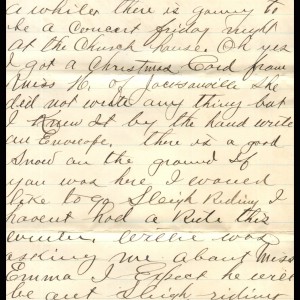 a while. there is gowny to
be a concert friday night
at the Church house. Oh yes
I got a Christmas Card from
Miss H. of Jacksonville She
did not write any thing but
I Knew It by the hand write
on Envelope, there is a good
Snow on the ground If
you was here I would
like to go Sleigh Riding I
havent had a Ride this
winter. Willie was
asking me about Miss
Emma I Expect he will
be out Sleigh riding